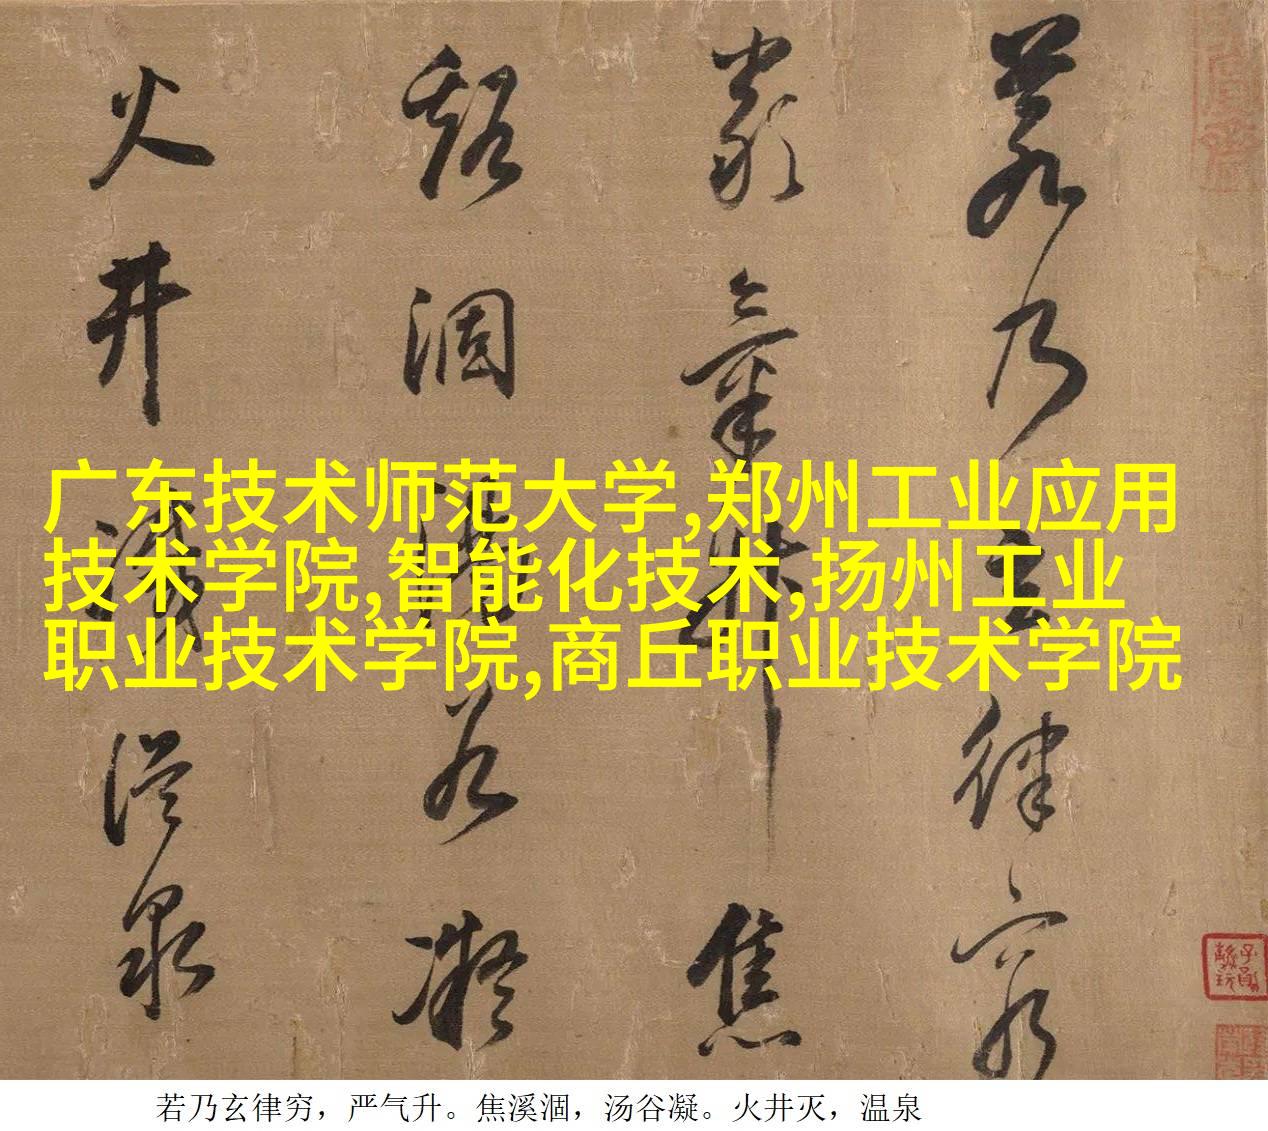 若乃玄律窮
嚴氣升焦
谿涸湯谷凝
火井滅溫泉
广东技术师范大学,郑州工业应用
技术学院,智能化技术,扬州工业
职业技术学院,商丘职业技术学院
若乃玄律穷，严气升。焦溪涸，汤谷凝。火井灭，温泉